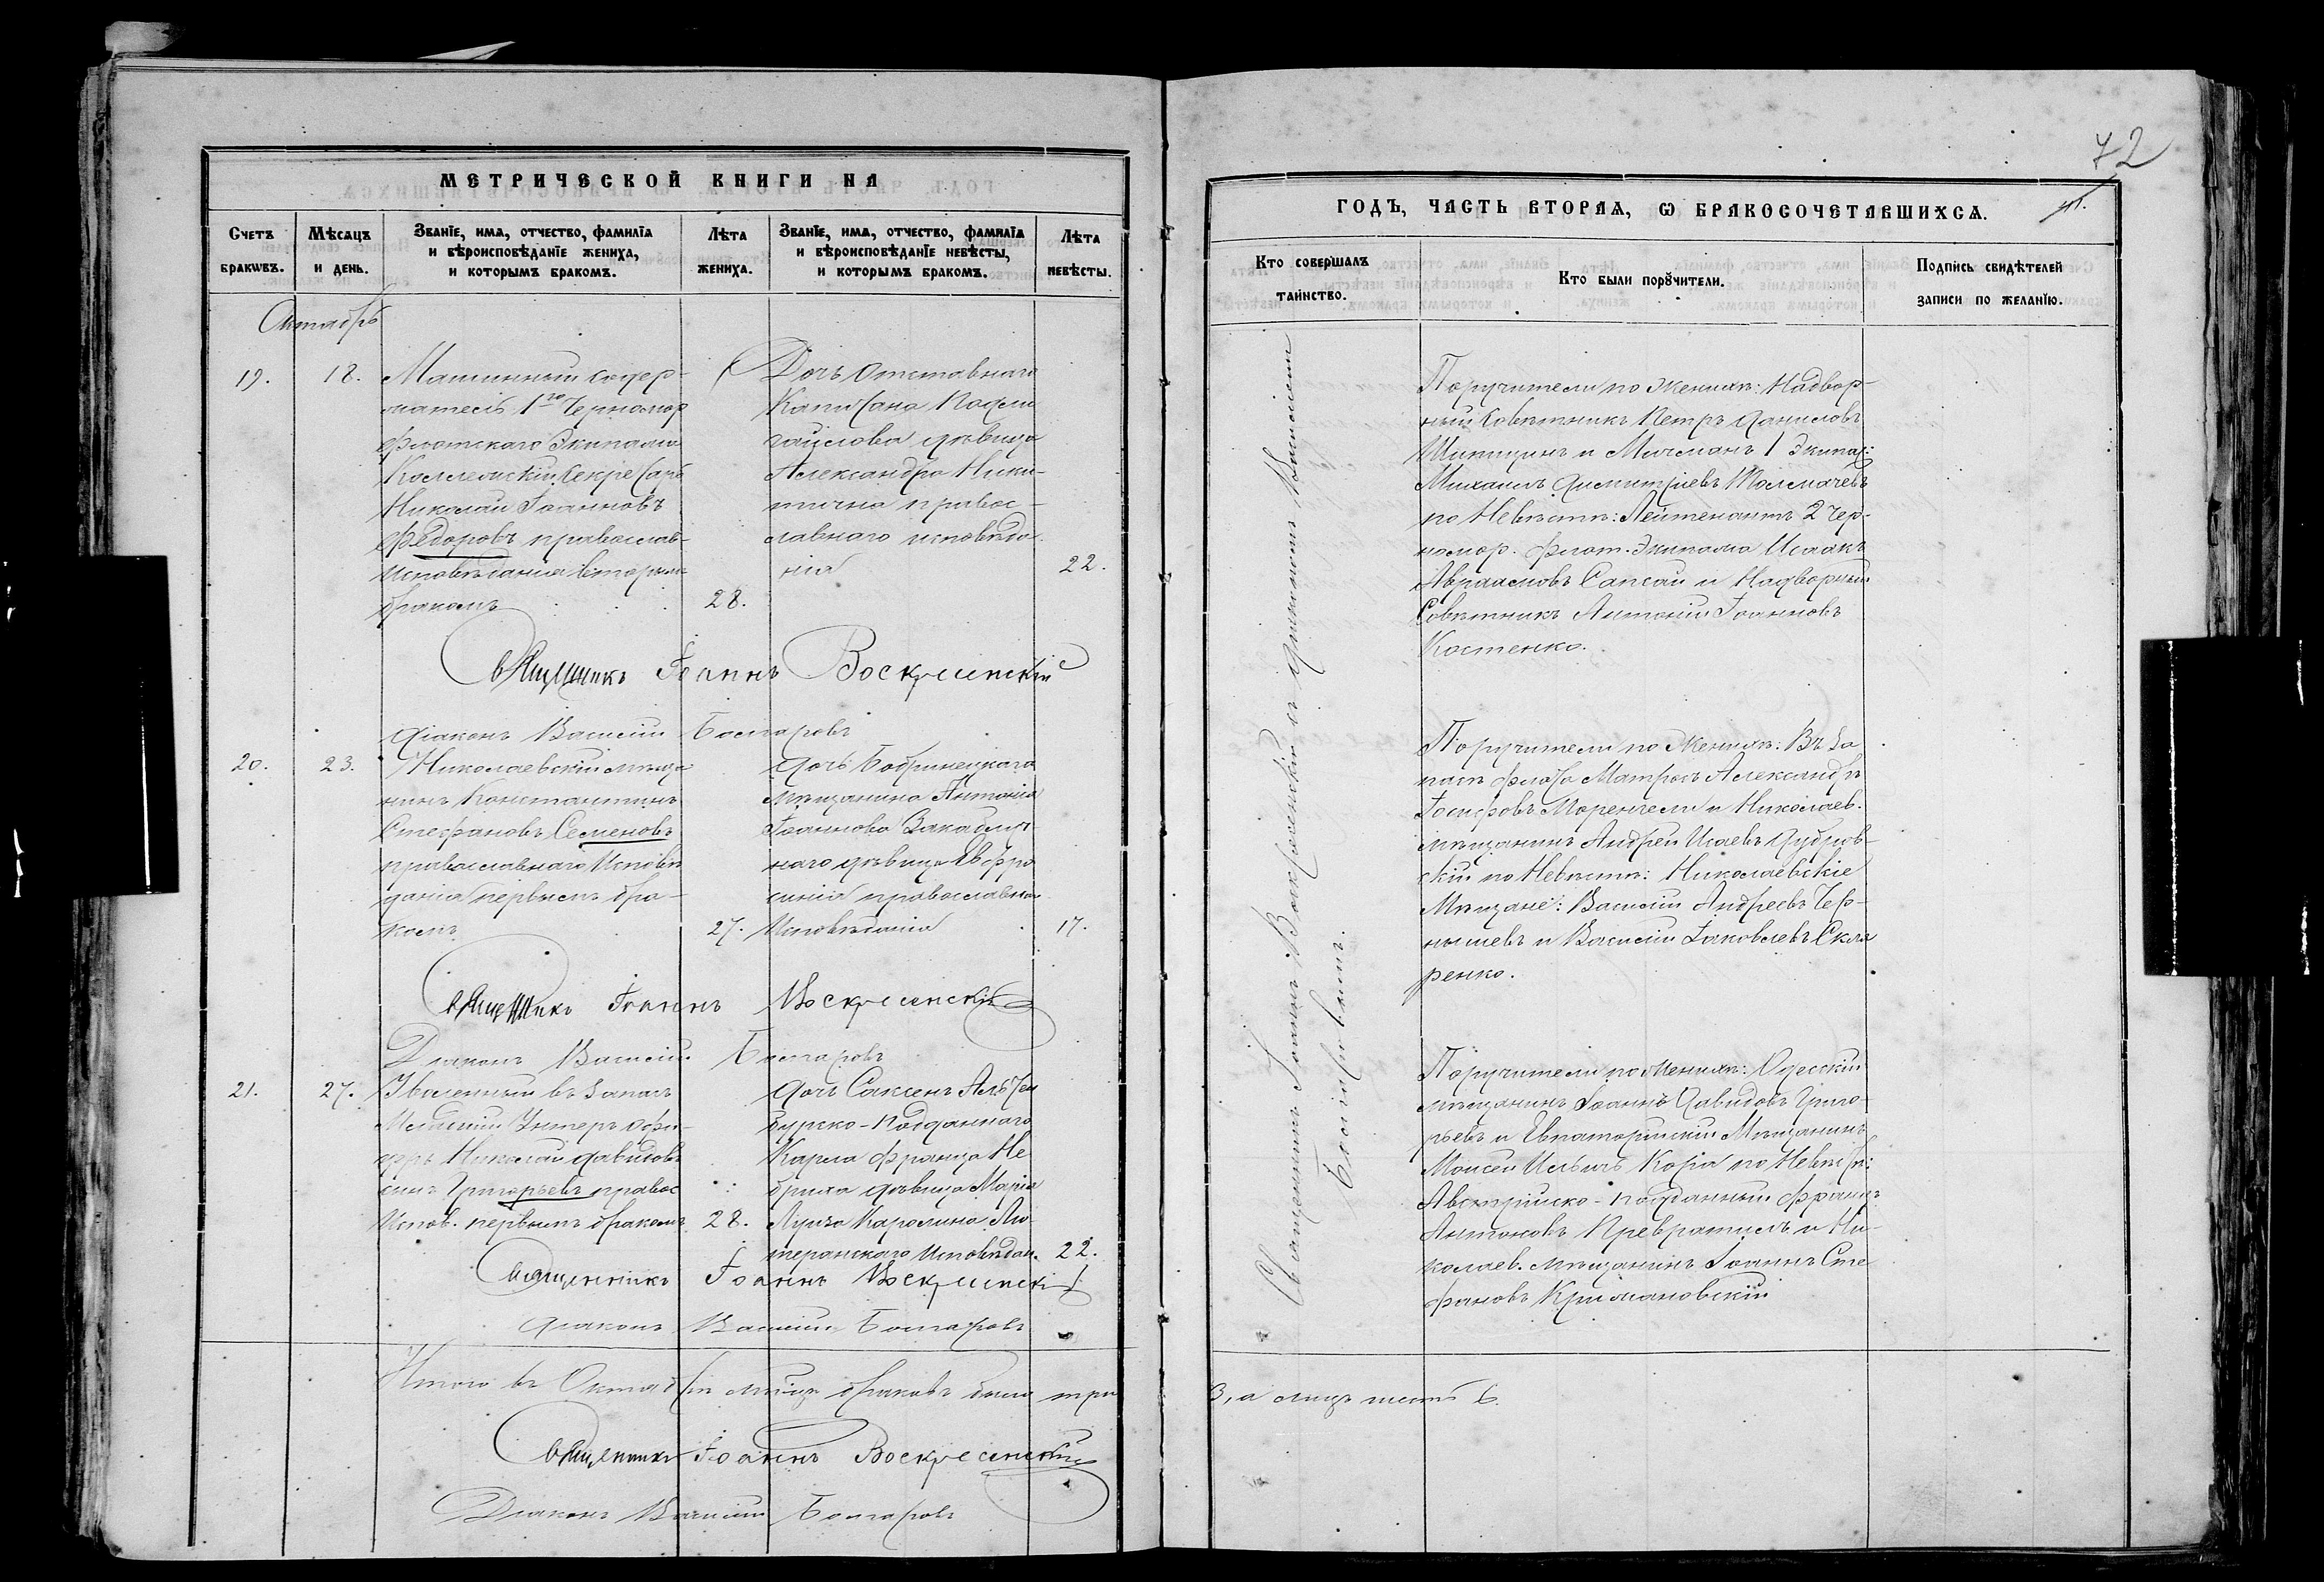 МЕТРИЧЕСКОЙ КНИГИ НА
Счетъ браковъ.
Мѣсяцъ и день.
Званїе, имя, отчество, фамилїя и вѣроисповѣданїе жениха, и которымъ бракомъ.
Лѣта жениха.
Званїе, имя, отчество, фамилїя и вѣроисповѣданїе невѣсты, и которымъ бракомъ.
Лѣта невѣсты.
Октябрь
19.
18.
Машинный содер-
жатель 1го Черномор
флотскаго Экипажа
Коллежскій Секретарь
Николай Іоанновъ
Федоровъ православ-
исповѣданія вторымъ
бракомъ
28.
Дочь отставнаго
Капитана
девица
Александра Ники-
тична правос-
лавнаго исповѣда-
нія
22.
Священникъ Іоаннъ Воскресенскій
Діаконъ Василій Болгаровъ
20.
23.
Николаевскій мѣща
нинъ Константинъ
Стефановъ Семеновъ
православнаго Исповѣ
данія первымъ бра-
комъ
27.
дочь Бобринецкаго
мѣщанина Антонія
Іоаннова
наго дѣвица Евфро
синія православнаго
Исповѣданія
17.
Священникъ Іоаннъ Воскресенскій
Діаконъ Василій Болгаровъ
21.
27.
Уволенный въ Запасъ
Младшій Унтеръ Офи-
церъ Николай Давидовъ
сынъ Григорьевъ правос
Испов. первымъ бракомъ
28.
дочь Саксенъ Альтен
бургско-Подданнаго
Карла Франца Не
брила дѣвица Марія
Луиза Каролина Лю-
теранскаго Исповѣдан.
22.
Священникъ Іоаннъ Воскресенскій
Діаконъ Василій Болгаровъ
Итого въ Октябрѣ мѣсяцѣ браковъ было три
Священникъ Іоаннъ Воскресенскій
Діаконъ Василій Болгаровъ
72
ГОДЪ, ЧАСТЬ ВТОРАЯ, Ѡ БРАКОСОЧЕТАВШИХСЯ.
Кто совершалъ таинство.
Кто были порꙋчители.
Подпись свидѣтелей записи по желанїю.
Священникъ Іоаннъ Воскресенскій съ Діакономъ Василіемъ
Болгаровымъ.
Поручители по Женихѣ: Надвор-
ный Совѣтникъ Петръ Даниловъ
Шишкинъ и Мичманъ 1 Экипаж:
Михаилъ Димитріевъ Толмачевъ
по Невѣстѣ: Лейтенантъ 2 Чер-
номор. флот. Экипажа Исаакъ
Авраамовъ Сапсай и Надворный
Совѣтникъ Антоній Іоанновъ
Костенко.
Поручители по Женихѣ: Въ За
пасѣ флота Матросъ Александръ
Іосифовъ Моренчели и Николаев.
мѣщанинъ Андрей Исаевъ Дубров-
скій по Невѣстѣ: Николаевскіе
Мѣщане: Василій Андреевъ Чер-
нышевъ и Василій Іаковлевъ Скля
ренко.
Поручители по Женихѣ: Одесскій
мѣщанинъ Іоаннъ Давидовъ Григо-
рьевъ и Евпаторійскій Мѣщанинъ
Моисей Ильичъ Коріа по Невѣстѣ:
Австрійско-подданный Францъ
Антоновъ Превратилъ и Ни-
колаев. мѣщанинъ Іоаннъ Сте
фановъ Крижановскій
3, а лицъ шесть 6.